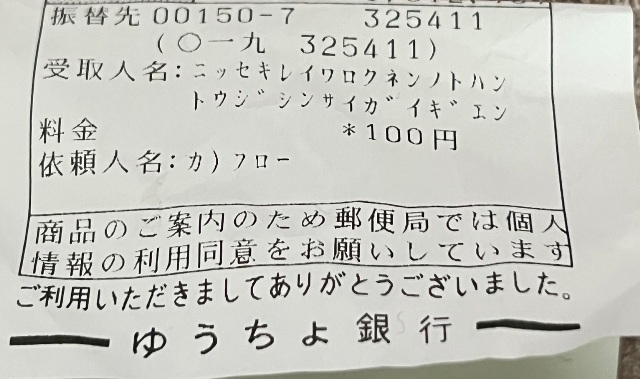 振替先 00150-7 325411
(〇一九 325411)
受取人名:ニッセキレイワロクネンノトハン
トウジシンサイガイギエン
料金 *100円
依頼人名:カ)フロー
商品のご案内のため郵便局では個人
情報の利用同意をお願いしています
ご利用いただきましてありがとうございました。
ゆうちょ銀行